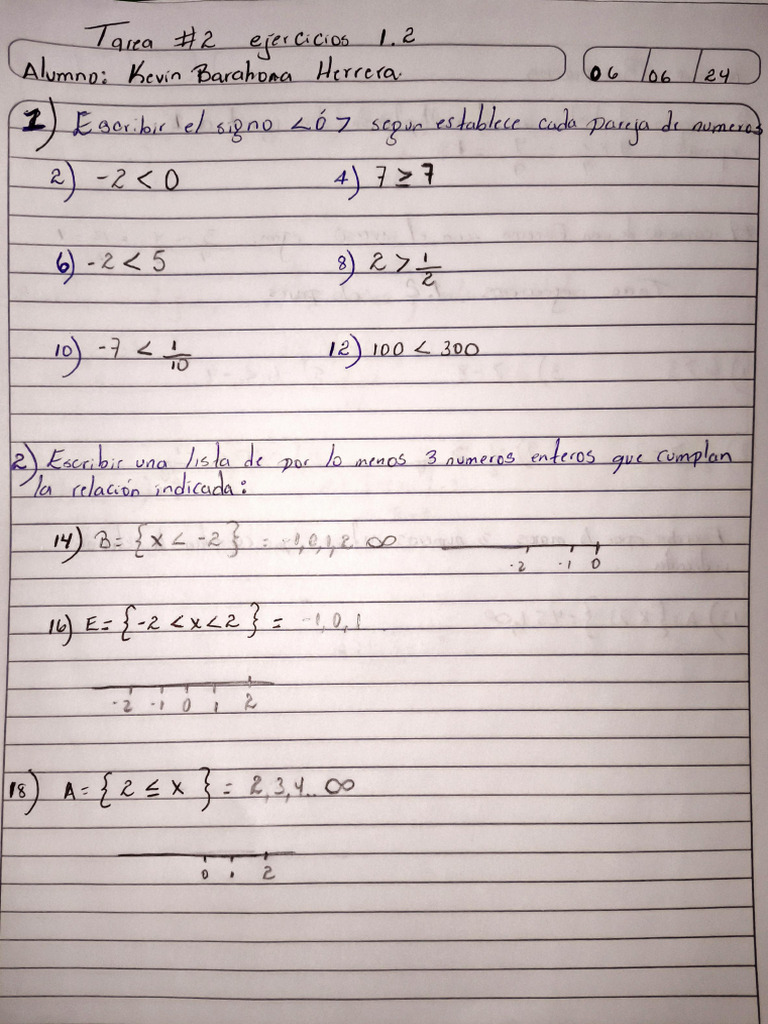 Tarea #2 ejercicios 1.2
Alumno: Kevin Barahona Herrera 06/06/24
1) Escribir el signo < ó > segun establece cada pareja de numeros
2) -2 < 0 4) 7 ≥ 7
6) -2 < 5 8) 2 > 1/2
10) -7 < 1/10 12) 100 < 300
2) Escribir una lista de por lo menos 3 numeros enteros que cumplan
la relación indicada:
14) B = { x < -2 } = -1,0,1,2 ∞
-2 -1 0
16) E = { -2 < x < 2 } = -1,0,1
-2 -1 0 1 2
18) A = { 2 ≤ x } = 2,3,4.. ∞
0 1 2